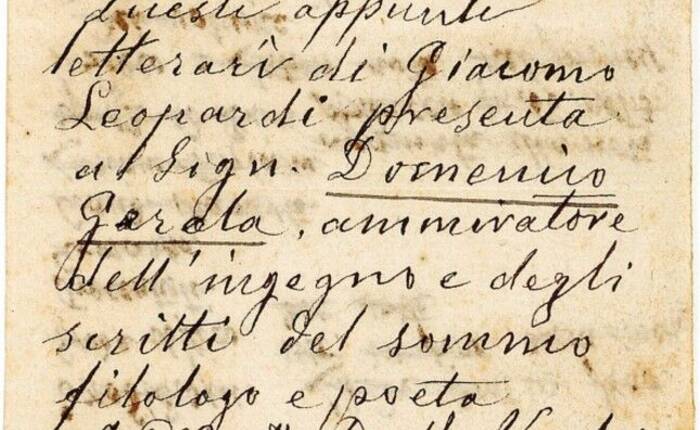 Questi appunti
letterarî di Giacomo
Leopardi presenta
al Sign. Domenico
Gerola, ammiratore
dell'ingegno e degli
scritti del sommo
filologo e poeta